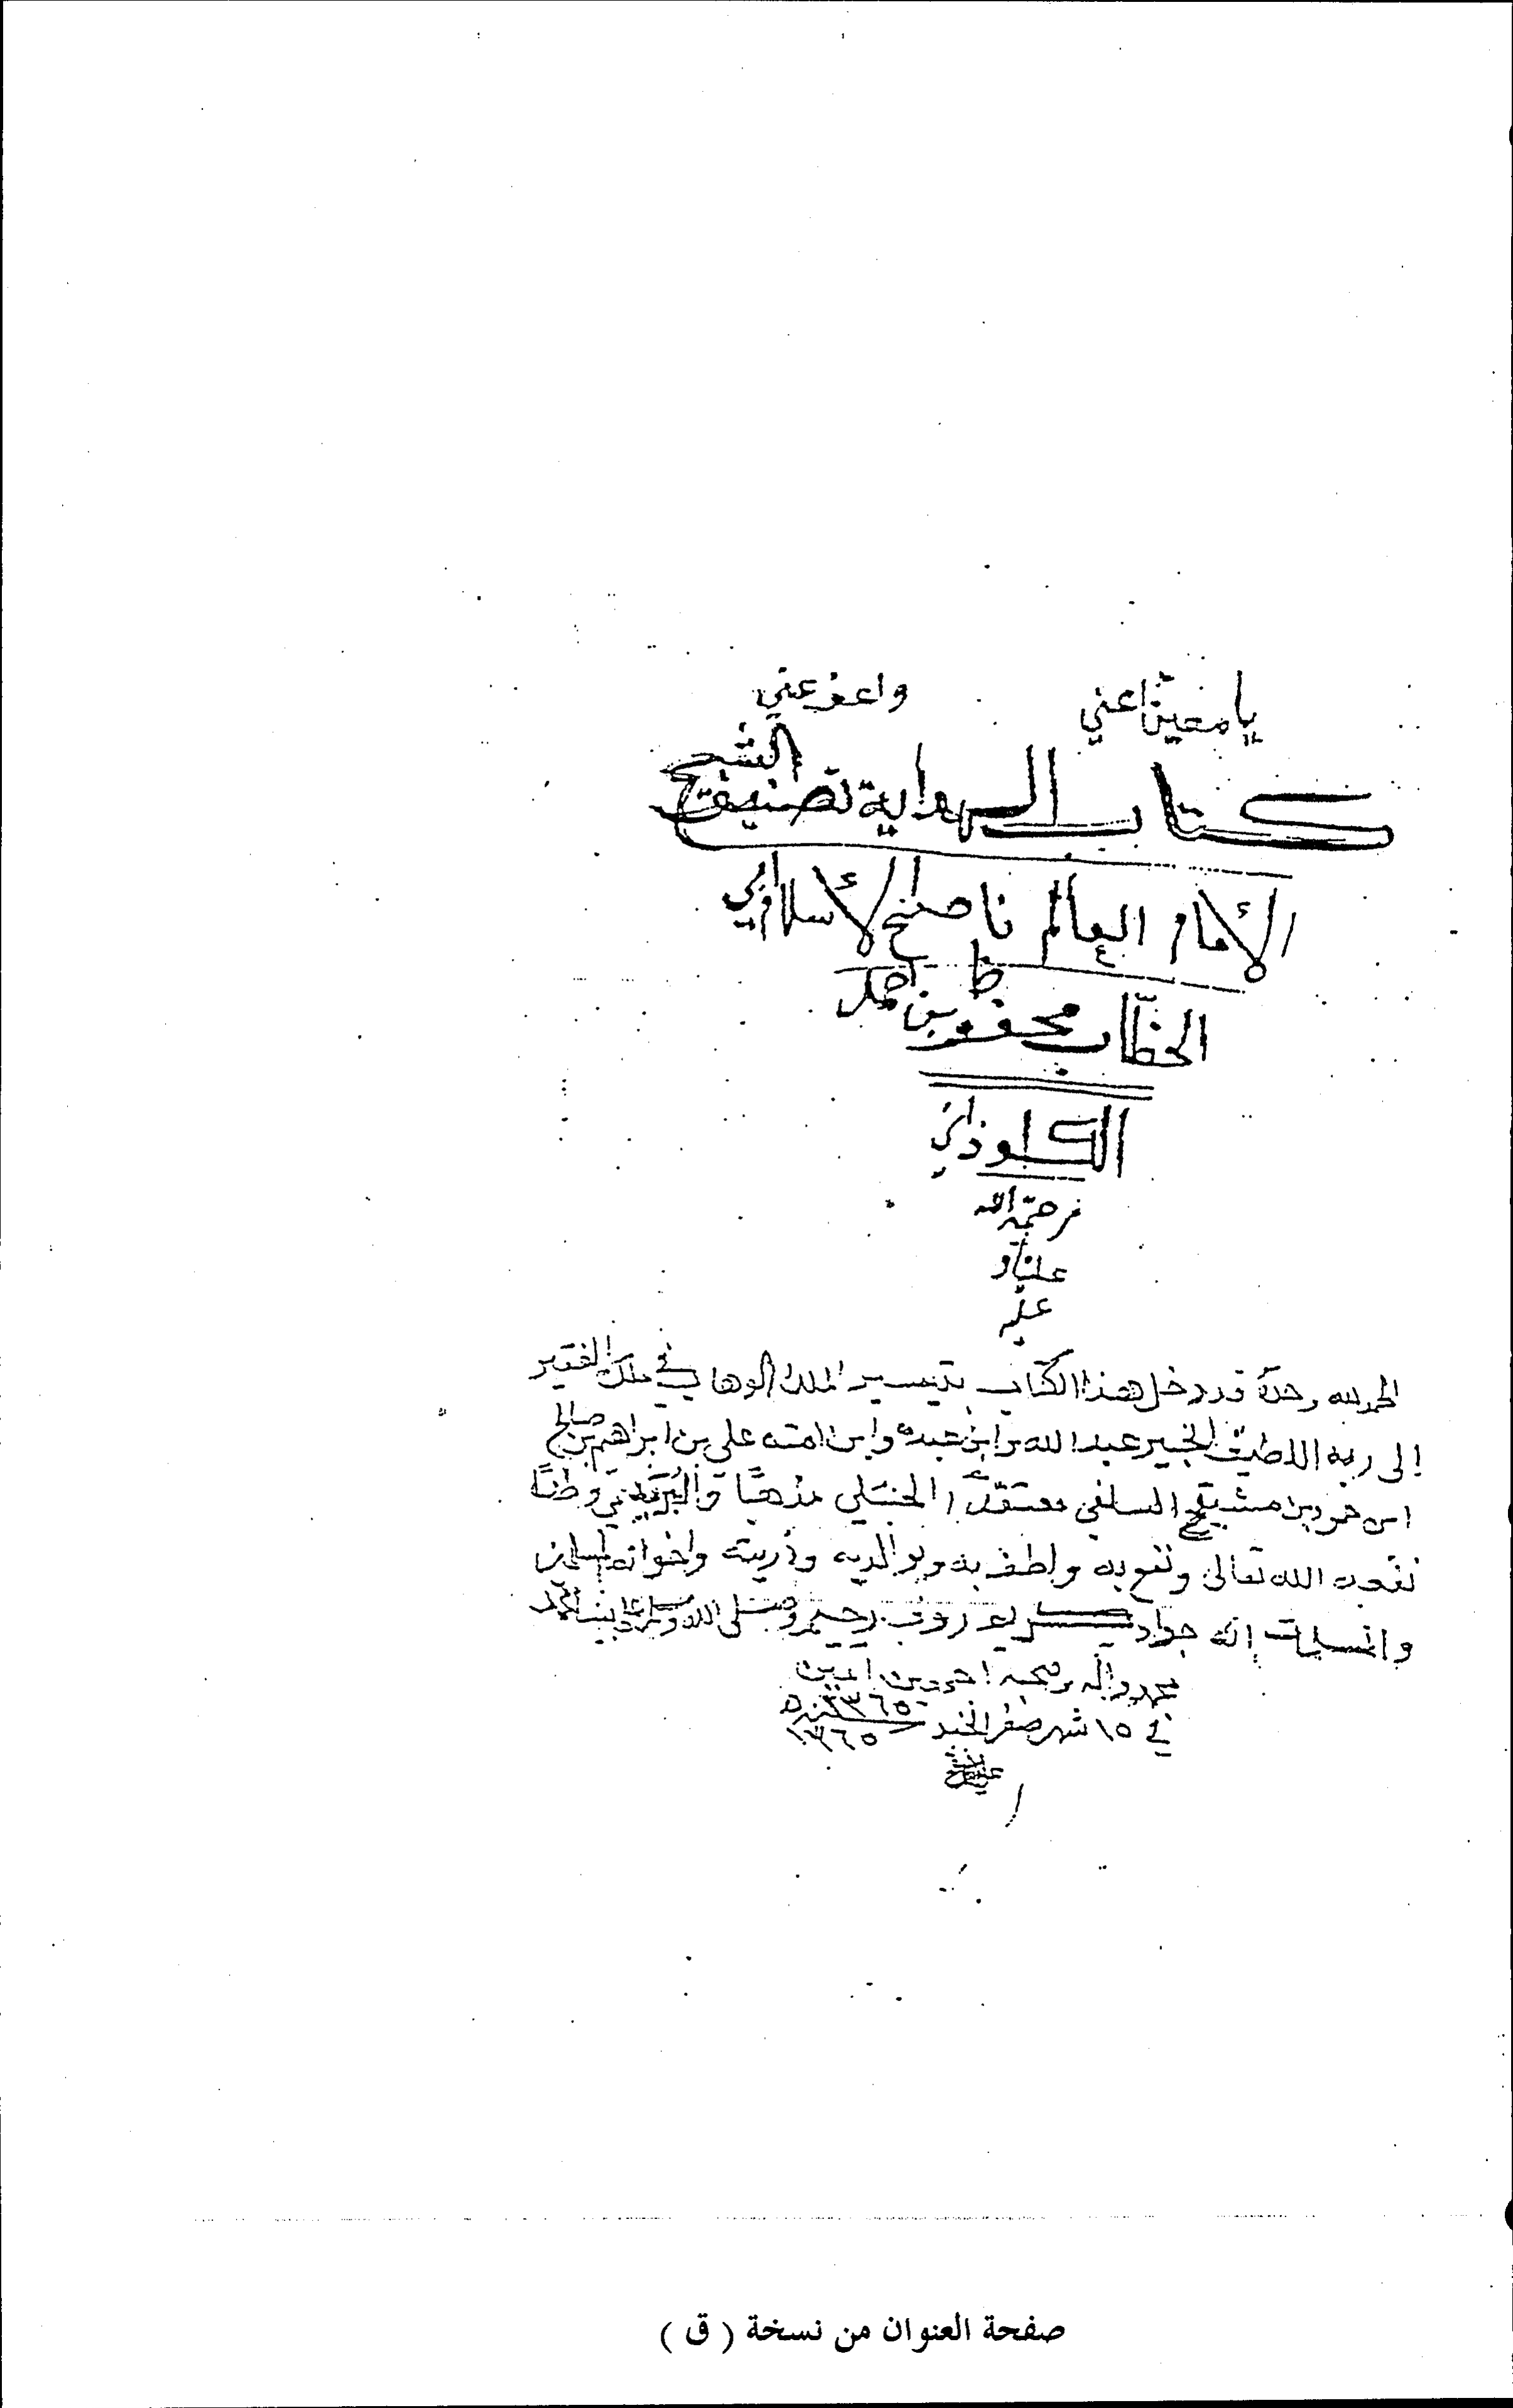 يا معين اعني واعف عني
كتاب الهداية تصنيف الشيخ
الأمام العالم ناصح الأسلام ابي
الخطّاب محفوظ بن احمد
الكلوذاني
رحمة الله
علينا و
عليه
الحمد لله وحده قد دخل هذا الكتاب بتيسير الملك الوهاب في ملك الفقير
إلى ربه اللطيف الخبير عبد الله وابن عبده وابن امته علي بن ابراهيم بن صالح
ابن حمود بن مشيقح السلفي معتقدًا الحنبلي مذهبًا والبُرَيدِي وطنًا
نفعه الله تعالى ونفع به ولطف به وبوالديه وذريته واخوانه المسلمين
والمسلمات إنه جواد كريم رؤف رحيم وصلى الله وسلم على نبينا محمد
محمد وآله وصحبه اجمعين امين
في ١٥ شهر صفر الخير سنة ١٣٦٥
١٣٦٥
صفحة العنوان من نسخة ( ق )